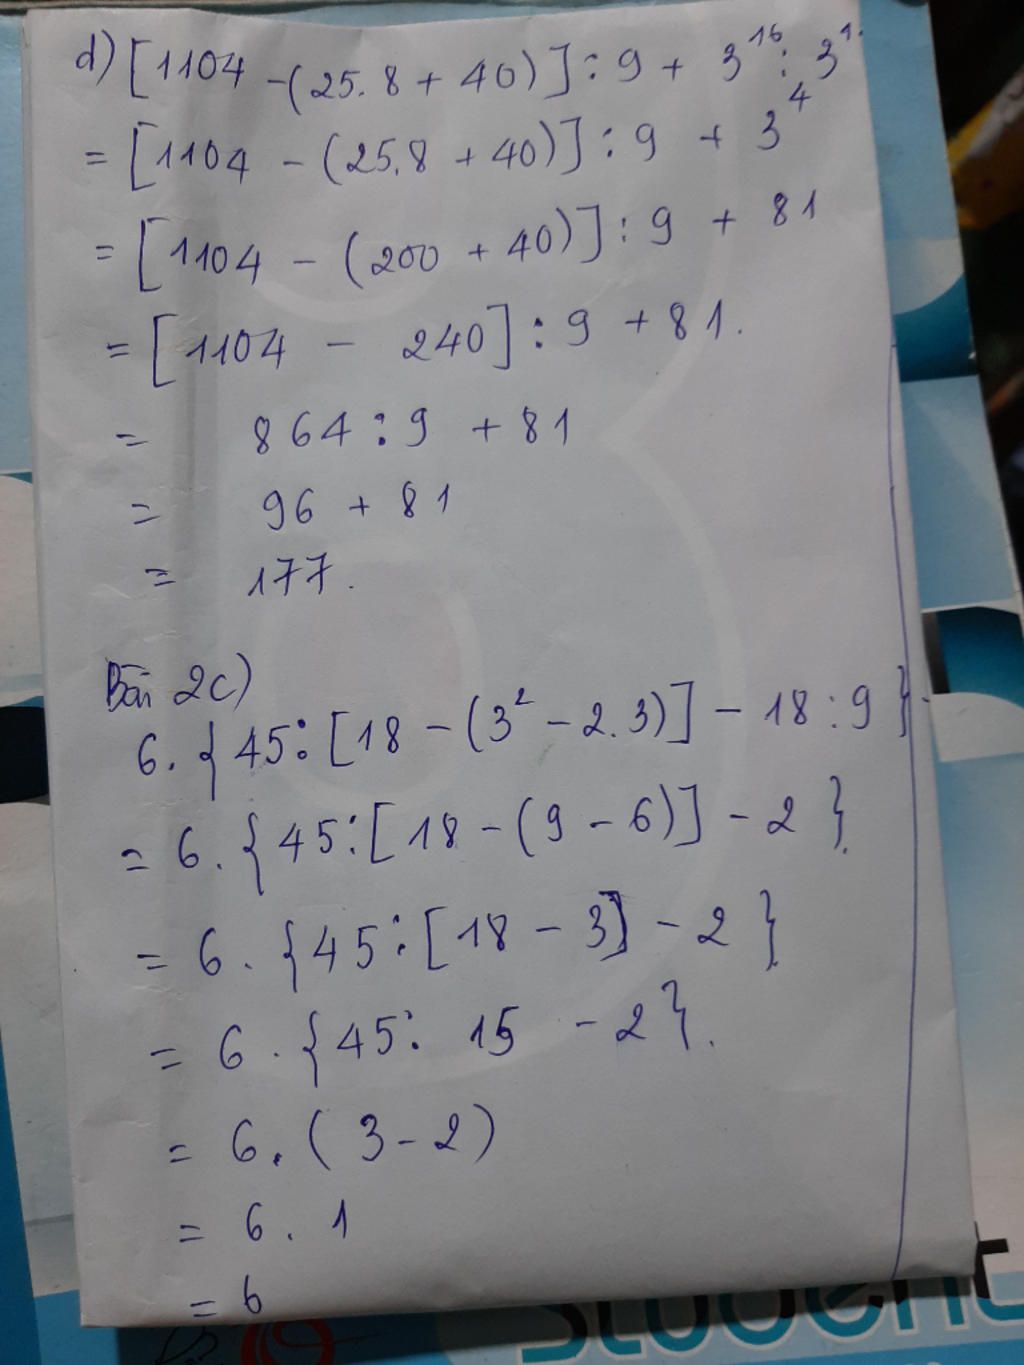 d) [1104 - (25.8 + 40)] : 9 + 3¹⁶ : 3¹
= [1104 - (25.8 + 40)] : 9 + 3⁴
= [1104 - (200 + 40)] : 9 + 81
= [1104 - 240] : 9 + 81.
= 864 : 9 + 81
= 96 + 81
= 177.
Bài 2c)
6. {45 : [18 - (3² - 2.3)] - 18 : 9}
= 6. {45 : [18 - (9 - 6)] - 2}.
= 6. {45 : [18 - 3] - 2}.
= 6. {45 : 15 - 2}.
= 6. (3 - 2)
= 6. 1
= 6
Student